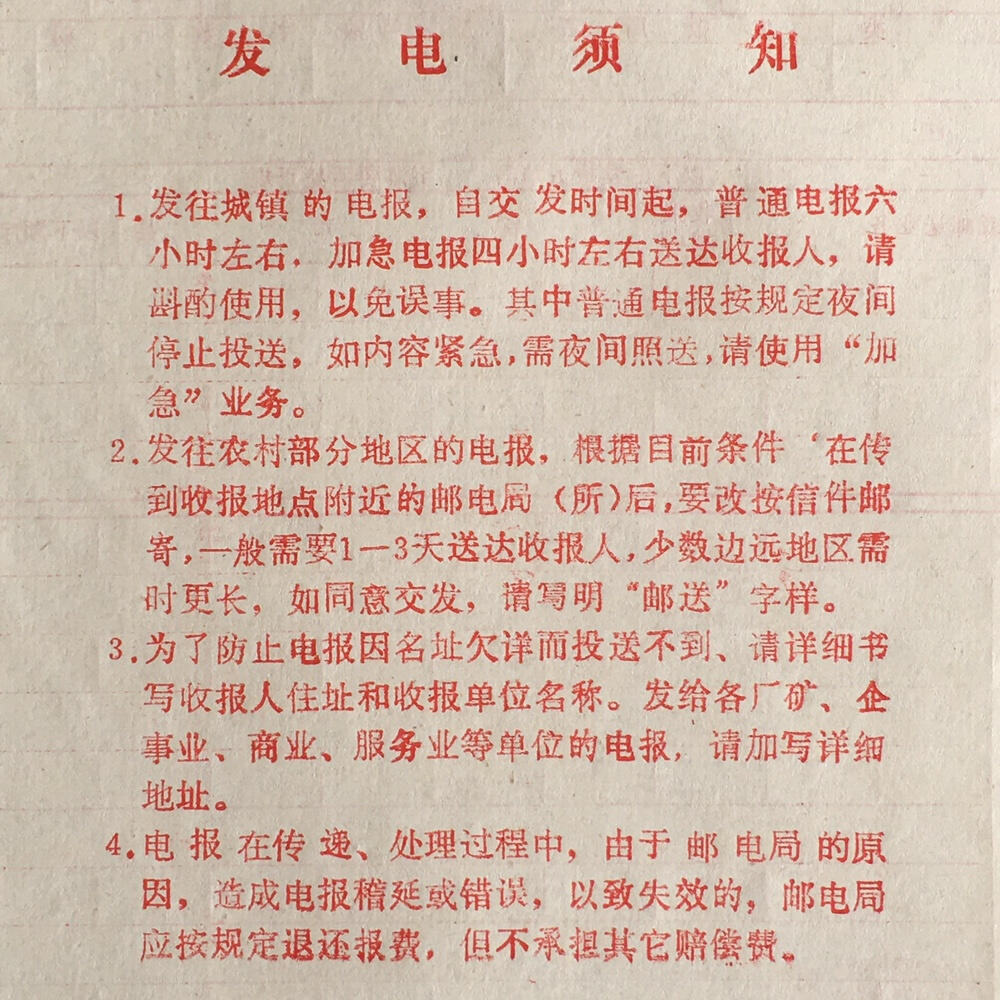 发电须知
1.发往城镇的电报，自交发时间起，普通电报六
小时左右，加急电报四小时左右送达收报人，请
斟酌使用，以免误事。其中普通电报按规定夜间
停止投送，如内容紧急，需夜间照送，请使用“加
急”业务。
2.发往农村部分地区的电报，根据目前条件‘在传
到收报地点附近的邮电局（所）后，要改按信件邮
寄，一般需要1—3天送达收报人，少数边远地区需
时更长，如同意交发，请写明“邮送”字样。
3.为了防止电报因名址欠详而投送不到、请详细书
写收报人住址和收报单位名称。发给各厂矿、企
事业、商业、服务业等单位的电报，请加写详细
地址。
4.电报在传递、处理过程中，由于邮电局的原
因，造成电报稽延或错误，以致失效的，邮电局
应按规定退还报费，但不承担其它赔偿费。